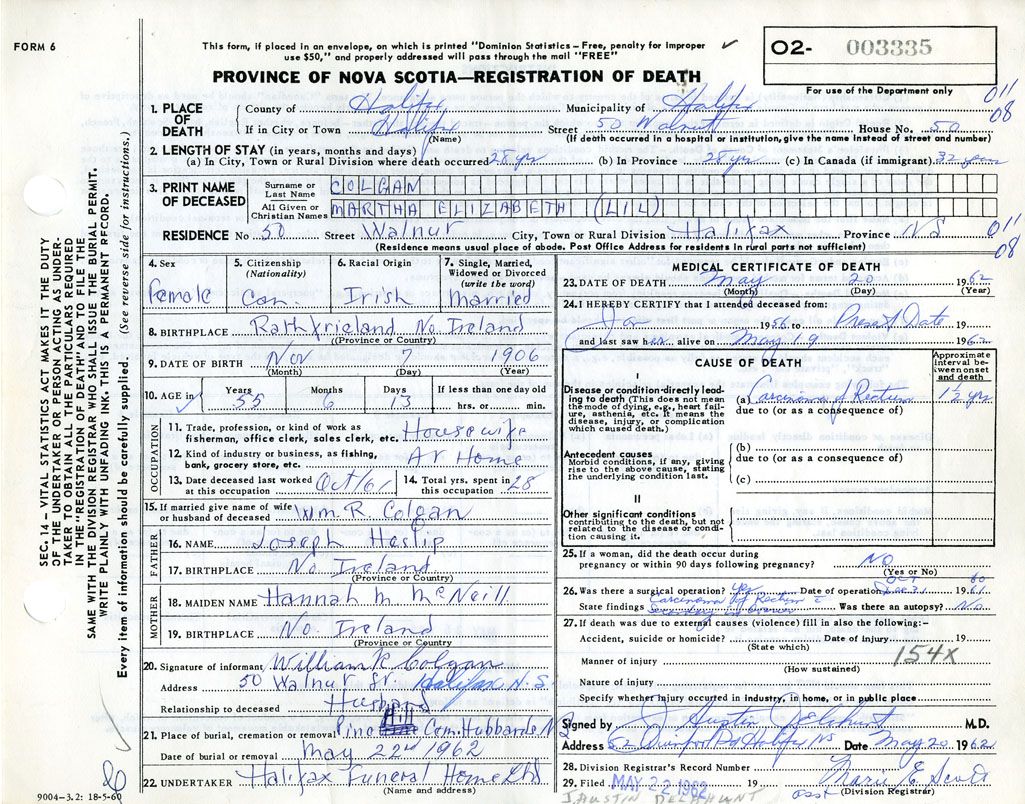 FORM 6
This form, if placed in an envelope, on which is printed "Dominion Statistics – Free, penalty for improper
use $50," and properly addressed will pass through the mail "FREE"
O2- 003335
For use of the Department only
PROVINCE OF NOVA SCOTIA—REGISTRATION OF DEATH
011
08
1. PLACE OF DEATH
County of Halifax Municipality of Halifax
If in City or Town Halifax Street 50 Walnut House No. 50
(Name) (If death occurred in a hospital or institution, give the name instead of street and number)
2. LENGTH OF STAY (in years, months and days)
(a) In City, Town or Rural Division where death occurred 28 yrs (b) In Province 28 yrs (c) In Canada (if immigrant) 32 years
3. PRINT NAME OF DECEASED
Surname or Last Name COLGAN
All Given or Christian Names MARTHA ELIZABETH (LIL)
RESIDENCE No 50 Street Walnut City, Town or Rural Division Halifax Province NS
011
08
(Residence means usual place of abode. Post Office Address for residents in rural parts not sufficient)
4. Sex Female
5. Citizenship (Nationality) Can.
6. Racial Origin Irish
7. Single, Married, Widowed or Divorced (write the word) Married
8. BIRTHPLACE Rathfrieland No Ireland
(Province or Country)
9. DATE OF BIRTH Nov 7 1906
(Month) (Day) (Year)
10. AGE in Years 55 Months 6 Days 13 If less than one day old hrs. or min.
OCCUPATION
11. Trade, profession, or kind of work as fisherman, office clerk, sales clerk, etc. Housewife
12. Kind of industry or business, as fishing, bank, grocery store, etc. At Home
13. Date deceased last worked at this occupation Oct/61 14. Total yrs. spent in this occupation 28
15. If married give name of wife or husband of deceased Wm. R. Colgan
FATHER
16. NAME Joseph Heslip
17. BIRTHPLACE No Ireland
(Province or Country)
MOTHER
18. MAIDEN NAME Hannah M McNeill
19. BIRTHPLACE No. Ireland
(Province or Country)
20. Signature of informant William R Colgan
Address 50 Walnut St. Halifax N.S.
Relationship to deceased Husband
21. Place of burial, cremation or removal Pine Com. Hubbards N
Date of burial or removal May 22nd 1962
22. UNDERTAKER Halifax Funeral Home Ltd
(Name and address)
9004-3.2: 18-5-60
SEC. 14 – VITAL STATISTICS ACT MAKES IT THE DUTY
OF THE UNDERTAKER OR PERSON ACTING AS UNDER-
TAKER TO OBTAIN ALL THE PARTICULARS REQUIRED
IN THE "REGISTRATION OF DEATH" AND TO FILE THE
SAME WITH THE DIVISION REGISTRAR WHO SHALL ISSUE THE BURIAL PERMIT.
WRITE PLAINLY WITH UNFADING INK. THIS IS A PERMANENT RECORD.
Every item of information should be carefully supplied. (See reverse side for instructions.)
MEDICAL CERTIFICATE OF DEATH
23. DATE OF DEATH May 20 1962
(Month) (Day) (Year)
24. I HEREBY CERTIFY that I attended deceased from:
Jan 1956 to Present Date 19
and last saw her alive on May 19 1962
CAUSE OF DEATH
Approximate interval between onset and death
I
Disease or condition directly leading to death (This does not mean the mode of dying, e.g., heart failure, asthenia, etc. It means the disease, injury, or complication which caused death.)
(a) Carcinoma of Rectum 1½ yrs
due to (or as a consequence of)
Antecedent causes
Morbid conditions, if any, giving rise to the above cause, stating the underlying condition last.
(b)
due to (or as a consequence of)
(c)
II
Other significant conditions
contributing to the death, but not related to the disease or condition causing it.
25. If a woman, did the death occur during pregnancy or within 90 days following pregnancy? No
(Yes or No)
26. Was there a surgical operation? Yes Date of operation OCT 60 Dec 1961
State findings Carcinoma of Rectum Secondary Was there an autopsy? No
27. If death was due to external causes (violence) fill in also the following:-
Accident, suicide or homicide? Date of injury 19
(State which)
Manner of injury 154X
(How sustained)
Nature of injury
Specify whether injury occurred in industry, in home, or in public place
Signed by J Austin Delahunt M.D.
Address Halifax NS Date May 20 1962
28. Division Registrar's Record Number
29. Filed MAY 22 1962 19 Marie E. Scott
(Division Registrar)
J. AUSTIN DELAHUNT